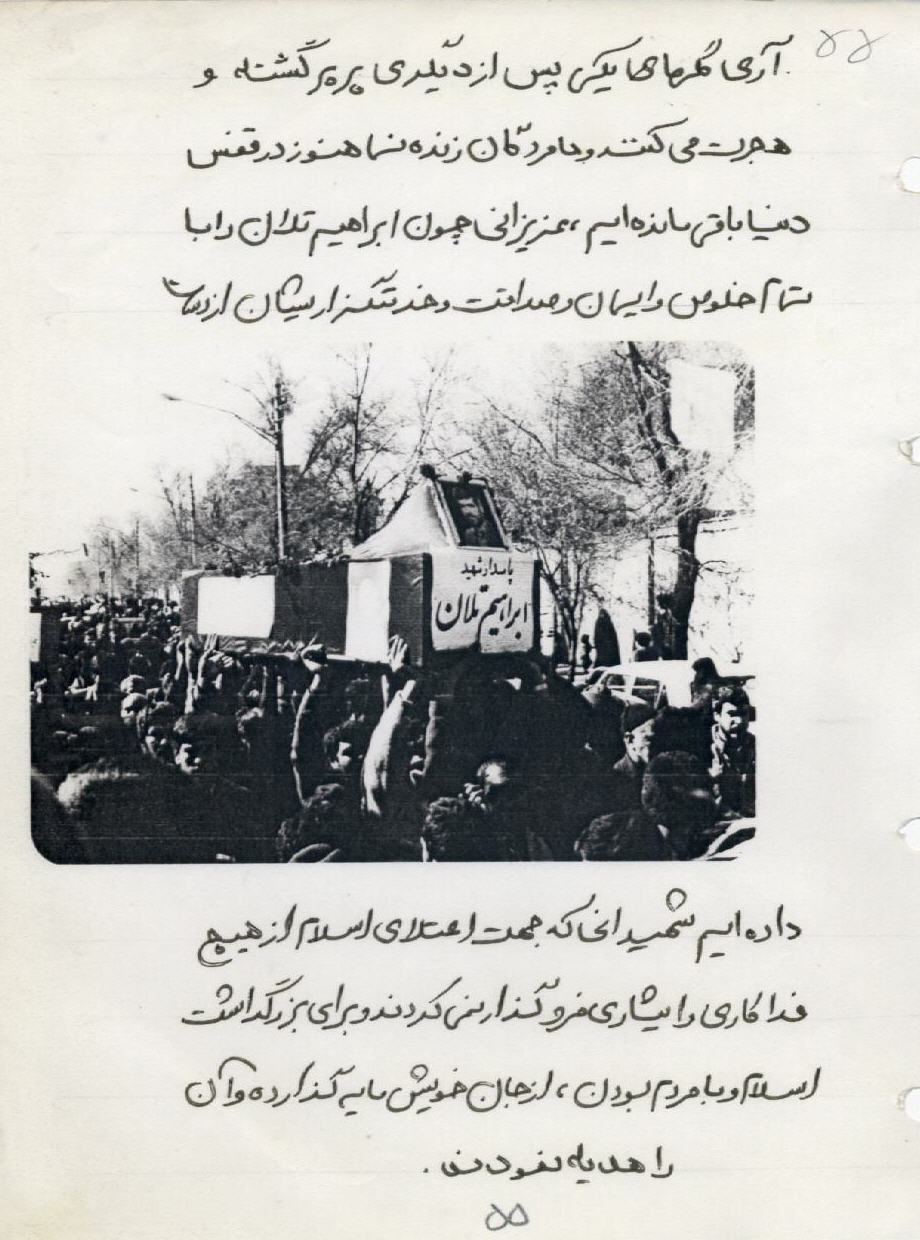 ۵۵
آری گلهای ما یکی پس از دیگری پرپر گشته و
هجرت می کنند و ما مردگان زنده نما هنوز در قفس
دنیا باقی مانده ایم ، عزیزانی چون ابراهیم تلان را با
تمام خلوص و ایمان و صداقت و خدمتگزاریشان از دست
پاسدار شهید
ابراهیم تلان
داده ایم شهیدانی که جهت اعتلای اسلام از هیچ
فداکاری و ایثاری فروگذار نمی کردند و برای بزرگداشت
اسلام و با مردم بودن ، از جان خویش مایه گذارده و آن
را هدیه نمودند .
۵۵